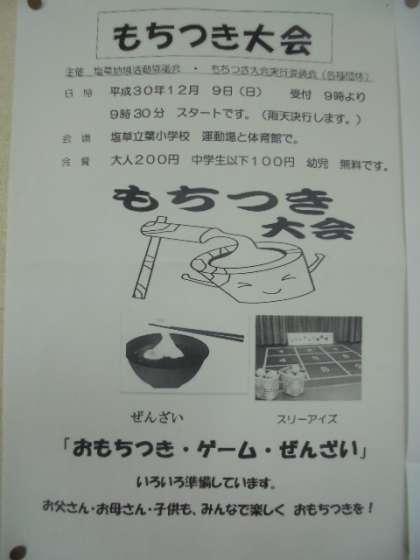 もちつき大会
主催 塩草地域活動協議会 ・ もちつき大会実行委員会（各種団体）
日 時 平成30年12月 9日（日） 受付 9時より
9時30分 スタートです。（雨天決行します。）
会 場 塩草立葉小学校 運動場と体育館で。
会 費 大人200円 中学生以下100円 幼児 無料です。
もちつき
大会
ぜんざい
スリーアイズ
「おもちつき・ゲーム・ぜんざい」
いろいろ準備しています。
お父さん・お母さん・子供も、みんなで楽しく おもちつきを！